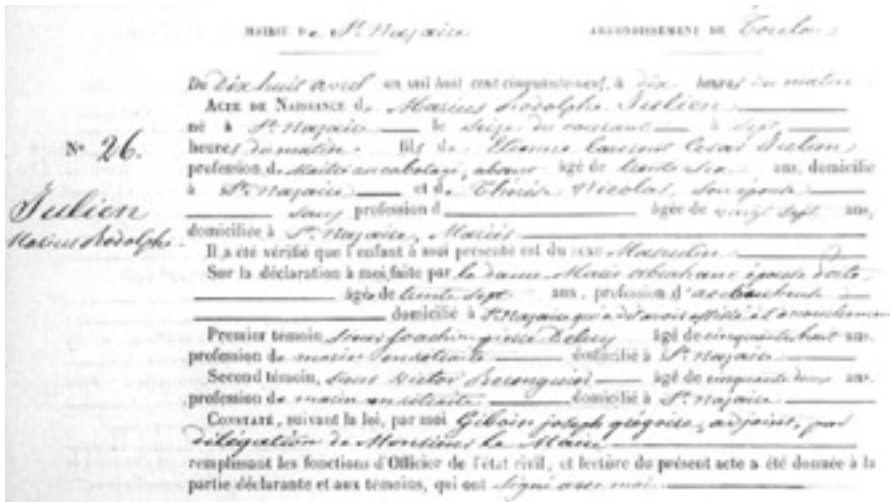 MAIRIE De St. Nazaire ARRONDISSEMENT DE Toulon
Du dix huit avril en mil huit cent cinquante-neuf, à dix heures du matin
ACTE DE NAISSANCE de Marius Rodolphe Julien
né à St. Nazaire le seize du courant à sept
heures du matin fils de Etienne Laurent Cesar Julien
profession de Maître au cabotage, absent âgé de trente six ans, domicilié
à St. Nazaire et de Thérèse Nicolas, son épouse
sans profession d âgée de vingt sept ans,
domiciliée à St. Nazaire, Mariés
Il a été vérifié que l'enfant à moi présenté est du sexe Masculin
Sur la déclaration à moi faite par la dame Marie épouse
âgée de trente sept ans, profession d'accoucheuse
domicilié à St. Nazaire qui a dit avoir assisté à l'accouchement
Premier témoin, sieur Joachim pierre âgé de cinquante huit ans,
profession de marin en retraite domicilié à St. Nazaire
Second témoin, sieur Victor âgé de cinquante deux ans,
profession de marin en retraite domicilié à St. Nazaire
CONSTATÉ, suivant la loi, par moi Giboin joseph grégoire, adjoint, par
délégation de Monsieur le Maire
remplissant les fonctions d'Officier de l'état civil, et lecture du présent acte a été donnée à la
partie déclarante et aux témoins, qui ont signé avec moi
No 26.
Julien
Marius Rodolphe